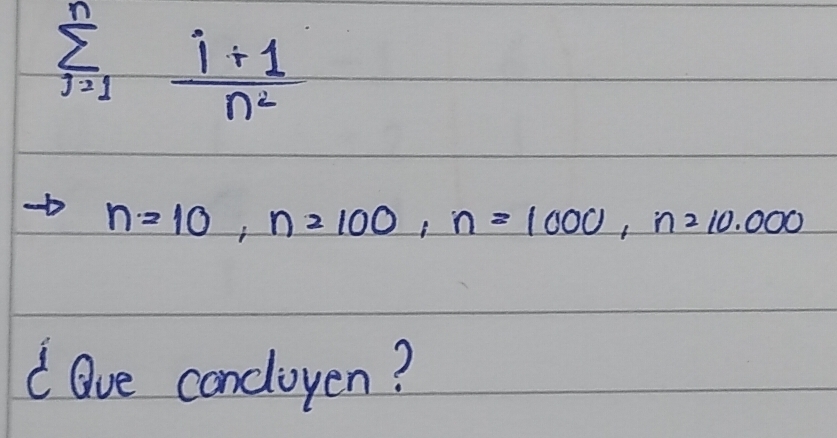 n
∑ i + 1
j=1 n²
→ n = 10 , n = 100 , n = 1000 , n = 10.000
¿ Que concluyen ?